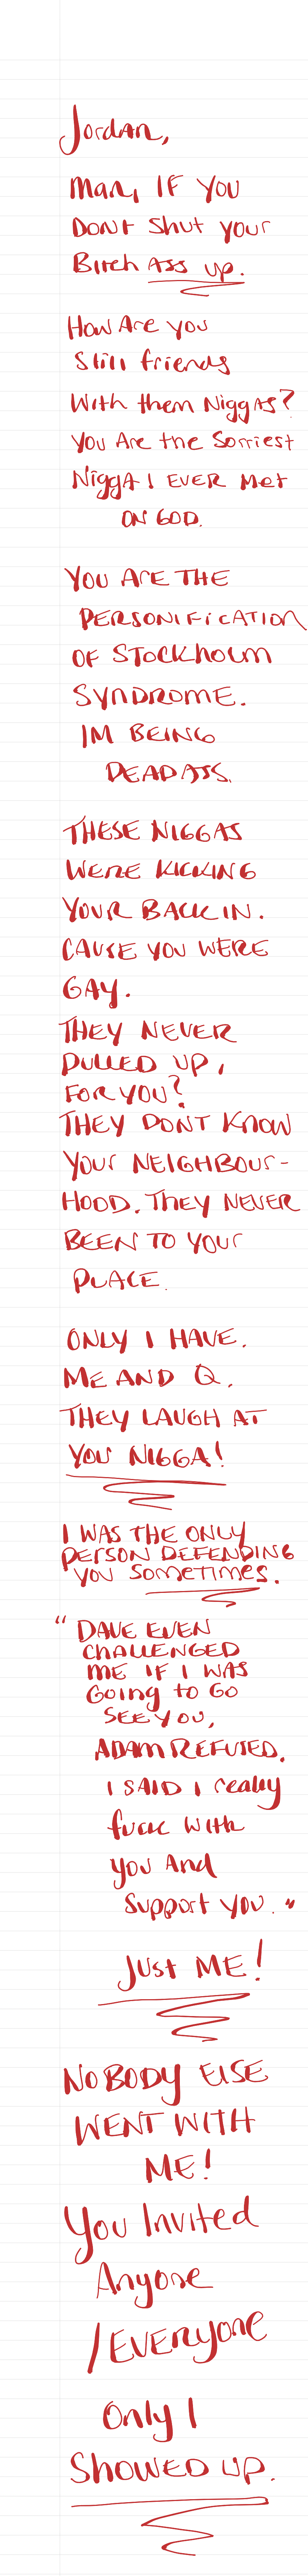 Jordan,
Man, IF YOU
DONt Shut your
Bitch ASS UP.
How Are you
Still friends
With them NiggAs?
You Are the Sorriest
NiggA I EVER Met
ON GOD.
YOU ARE THE
PERSONIFICATION
OF STOCKHOLM
SYNDROME.
IM BEING
DEADASS.
THESE NIGGAS
WERE KICKING
YOUR BACK IN.
CAUSE YOU WERE
GAY.
THEY NEVER
PULLED UP,
FOR YOU?
THEY DONT KNOW
YOUR NEIGHBOUR-
HOOD. THEY NEVER
BEEN TO YOUR
PLACE.
ONLY I HAVE.
ME AND Q.
THEY LAUGH AT
YOU NIGGA!
I WAS THE ONLY
PERSON DEFENDING
YOU Sometimes.
"DAVE EVEN
CHALLENGED
ME IF I WAS
Going to GO
SEE YOU,
ADAM REFUSED.
I SAID I really
fuck With
you And
Support you."
Just ME!
NOBODY ELSE
WENT WITH
ME!
You Invited
Anyone
/EVERyone
Only I
SHOWED UP.